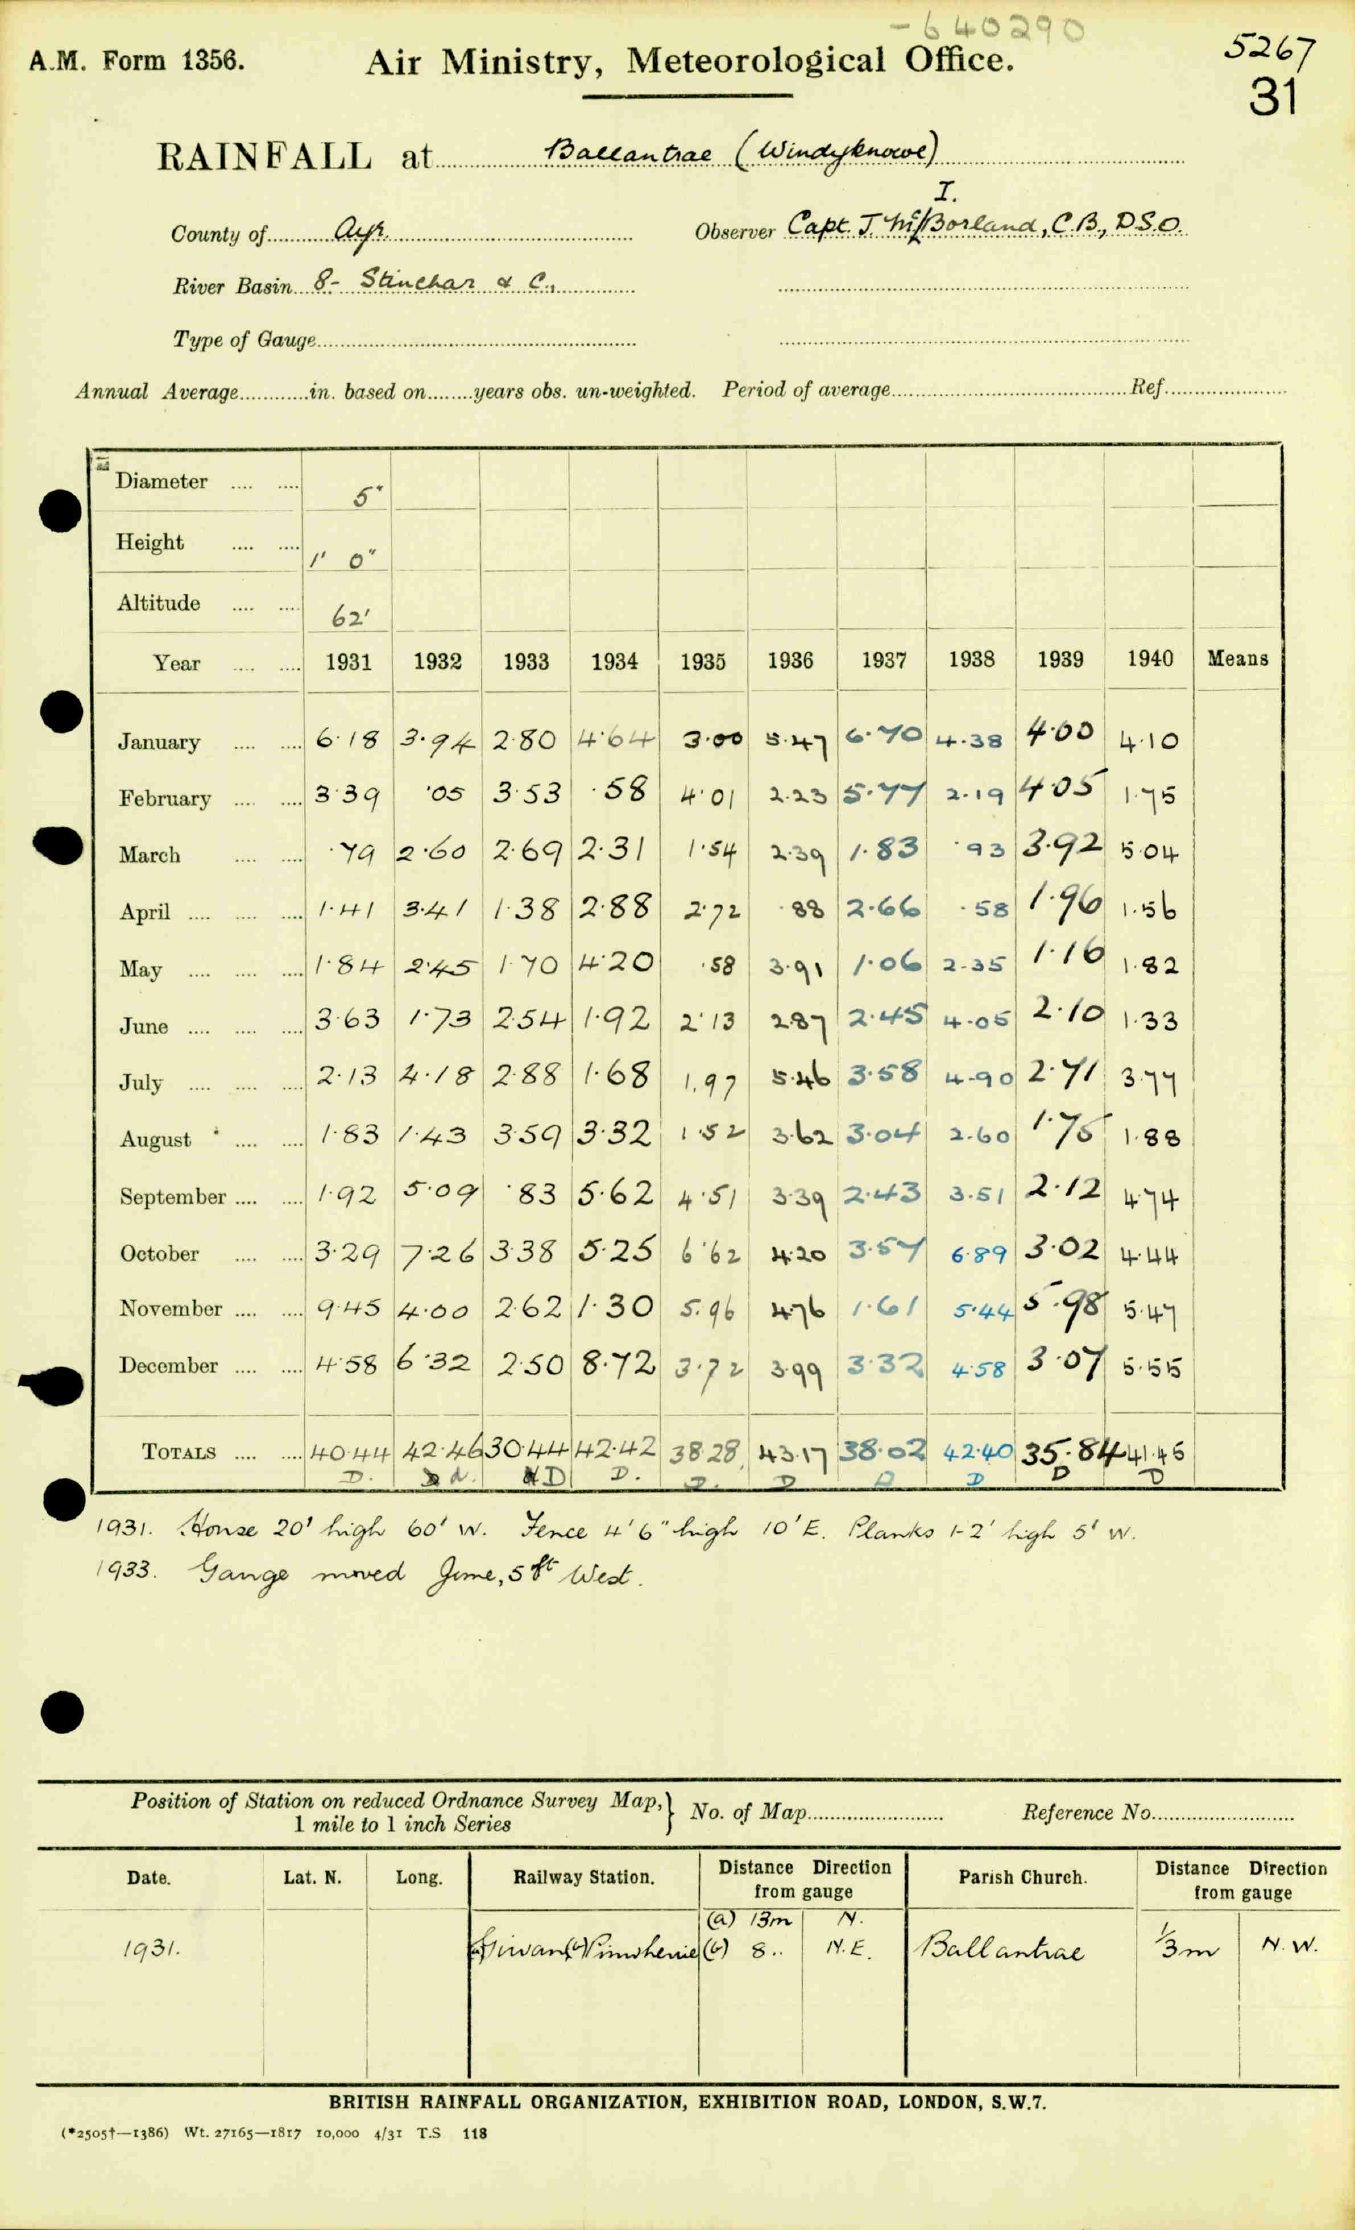 -640290
A.M. Form 1356. Air Ministry, Meteorological Office. 5267
31
RAINFALL at Ballantrae (Windyknowe)
I.
County of Ayr. Observer Capt. J. McBorland, C.B., D.S.O.
River Basin 8- Stinchar & C.,
Type of Gauge
Annual Average in. based on years obs. un-weighted. Period of average Ref.
Diameter 5"
Height 1' 0"
Altitude 62'
Year 1931 1932 1933 1934 1935 1936 1937 1938 1939 1940 Means
January 6·18 3·94 2·80 4·64 3·00 5·47 6·70 4·38 4·00 4·10
February 3·39 ·05 3·53 ·58 4·01 2·23 5·77 2·19 4·05 1·75
March ·79 2·60 2·69 2·31 1·54 2·39 1·83 ·93 3·92 5·04
April 1·41 3·41 1·38 2·88 2·72 ·88 2·66 ·58 1·96 1·56
May 1·84 2·45 1·70 4·20 ·58 3·91 1·06 2·35 1·16 1·82
June 3·63 1·73 2·54 1·92 2·13 2·87 2·45 4·05 2·10 1·33
July 2·13 4·18 2·88 1·68 1·97 5·46 3·58 4·90 2·71 3·77
August 1·83 1·43 3·59 3·32 1·52 3·62 3·04 2·60 1·75 1·88
September 1·92 5·09 ·83 5·62 4·51 3·39 2·43 3·51 2·12 4·74
October 3·29 7·26 3·38 5·25 6·62 4·20 3·57 6·89 3·02 4·44
November 9·45 4·00 2·62 1·30 5·96 4·76 1·61 5·44 5·98 5·47
December 4·58 6·32 2·50 8·72 3·72 3·99 3·32 4·58 3·07 5·55
TOTALS 40·44 42·46 30·44 42·42 38·28 43·17 38·02 42·40 35·84 41·45
D. d. D D. D. D D D D D
1931. House 20' high 60' W. Fence 4' 6" high 10' E. Planks 1-2' high 5' W.
1933. Gauge moved June, 5 ft West.
Position of Station on reduced Ordnance Survey Map, 1 mile to 1 inch Series } No. of Map Reference No.
Date. Lat. N. Long. Railway Station. Distance Direction from gauge Parish Church. Distance Direction from gauge
(a) 13m N.
1931. (a) Girvan (b) Pinwherrie (b) 8.. N.E. Ballantrae 1/3m N.W.
BRITISH RAINFALL ORGANIZATION, EXHIBITION ROAD, LONDON, S.W.7.
(*2505†—1386) Wt. 27165—1817 10,000 4/31 T.S 118